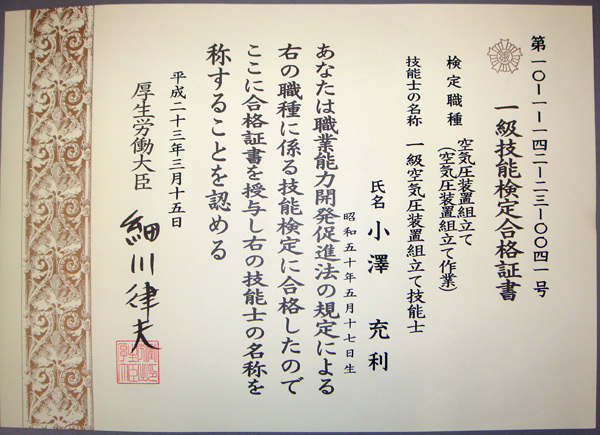 第一〇-一-一四二-二三-〇〇四一号
一級技能検定合格証書
検定職種 空気圧装置組立て
(空気圧装置組立て作業)
技能士の名称 一級空気圧装置組立て技能士
氏名 小澤 充利
昭和五十年五月十七日生
あなたは職業能力開発促進法の規定による
右の職種に係る技能検定に合格したので
ここに合格証書を授与し右の技能士の名称を
称することを認める
平成二十三年三月十五日
厚生労働大臣 細川律夫